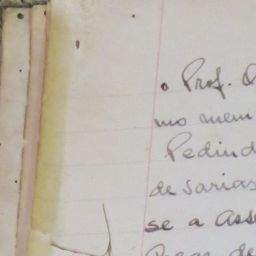 o Prof. O
mo mem
Pedind
de varias
se a Asse